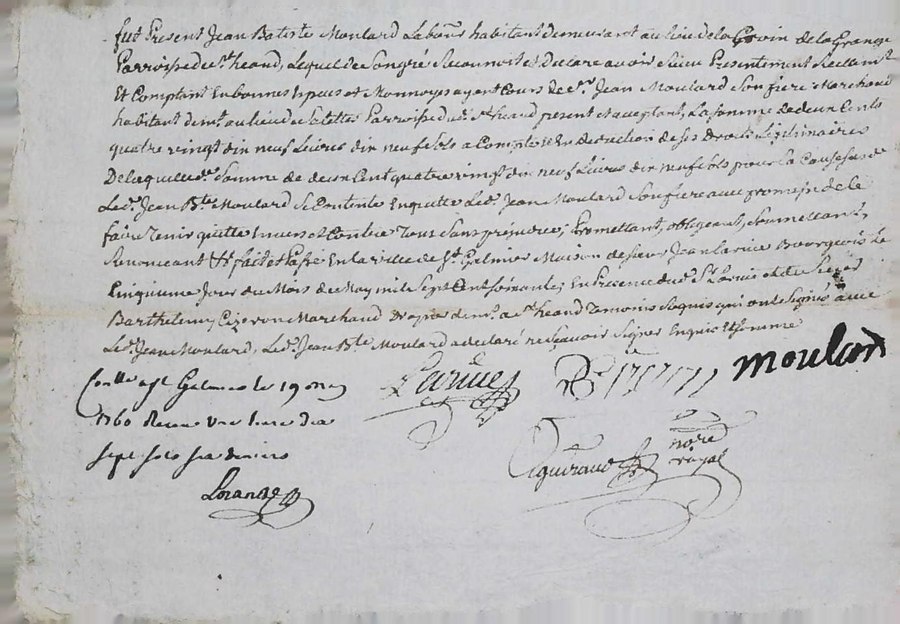 fut Present Jean Batiste Moulard Labour habitant demeurant au lieu de la de la Grange
Parroisse de St heand, Lequel de Son gré Reconnoit et declare avoir Receu Presentement Reelamt
Et Comptant En bonnes Especes et Monnoye ayant Cours de Sr Jean Moulard Son frere Marchand
habitant demt au lieu de Parroisse dud. St heand present et acceptant, La Somme de deux Cents
quatre vingt dix neuf Livres dix neuf Sols a Compte et En deduction de Ses Droits Legitimaires
De laquelle de Somme de deux Cent quatre vingt dix neuf Livres dix neuf Sols pour la Cause Susde
Led. Jean Bte Moulard Se Contente En quitte Led. Jean Moulard Son frere avec promesse de le
faire Tenir quitte Envers et Contre Tous Sans prejudice, Promettant, obligeant, Soumettant,
Renonceant &c fait et Passé En la ville de St Galmier Maison de Sieur Jean Larive Bourgeois Le
Cinquieme Jour du Mois de May mil Sept Cent Soixante, En Presence dud. Sr Larive et de Sieur
Barthelemy Cizeron Marchand demt a St heand Temoins Requis qui ont Signés avec
Led. Jean Moulard, Led. Jean Bte Moulard a declaré ne Sçavoir Signer Enquis Et Sommé
Larive moulard
Conllé a St Galmier le 19 may
1760 Receu une livre dix
sept sols six deniers
notre
royal